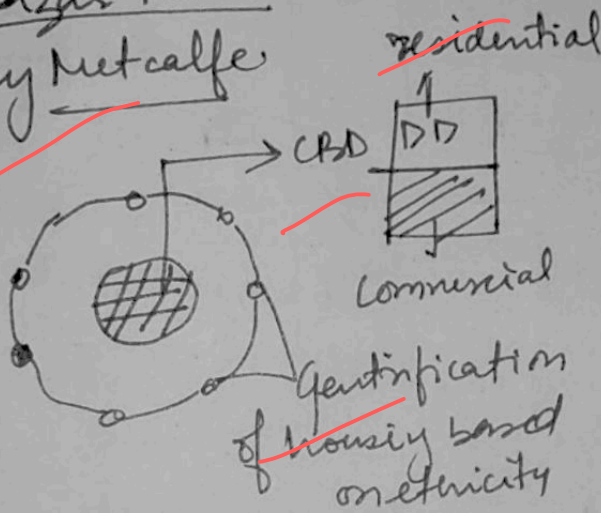 y Metcalfe
residential
DD
CBD
Commercial
Gentrification
of housiy based
on etnicity